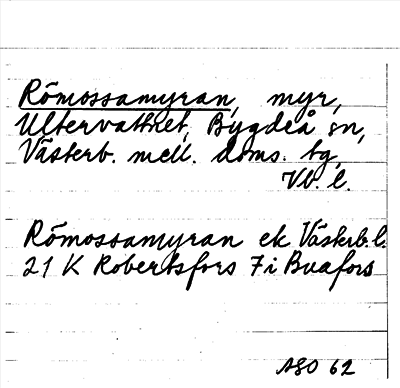 Römossamyran, myr,
Ultervattnet, Bygdeå sn,
Västerb. mell. doms. tg,
Vb. l.
Römossamyran ek Västerb.l.
21 K Robertsfors 7 i Bvafors
ASO 62